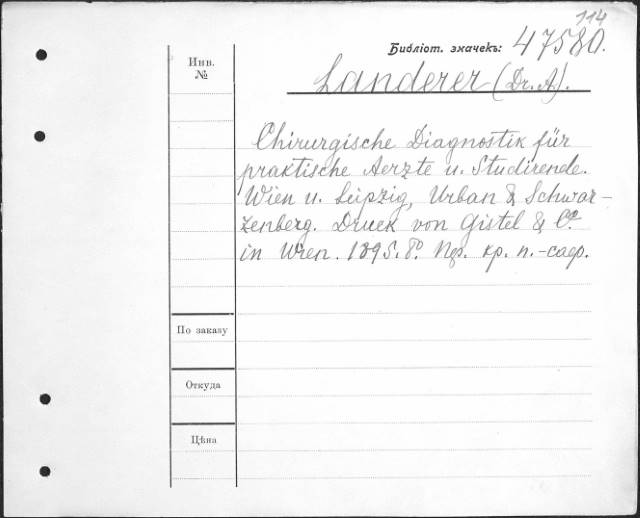 114
Библіот. значекъ: 47580.
Инв.
№
Landerer (Dr. A).
Chirurgische Diagnostik für
praktische Aerzte u. Studirende.
Wien u. Leipzig, Urban & Schwar-
zenberg. Druck von Gistel & Cº
in Wien. 1895. 8º.
По заказу
Откуда
Цѣна